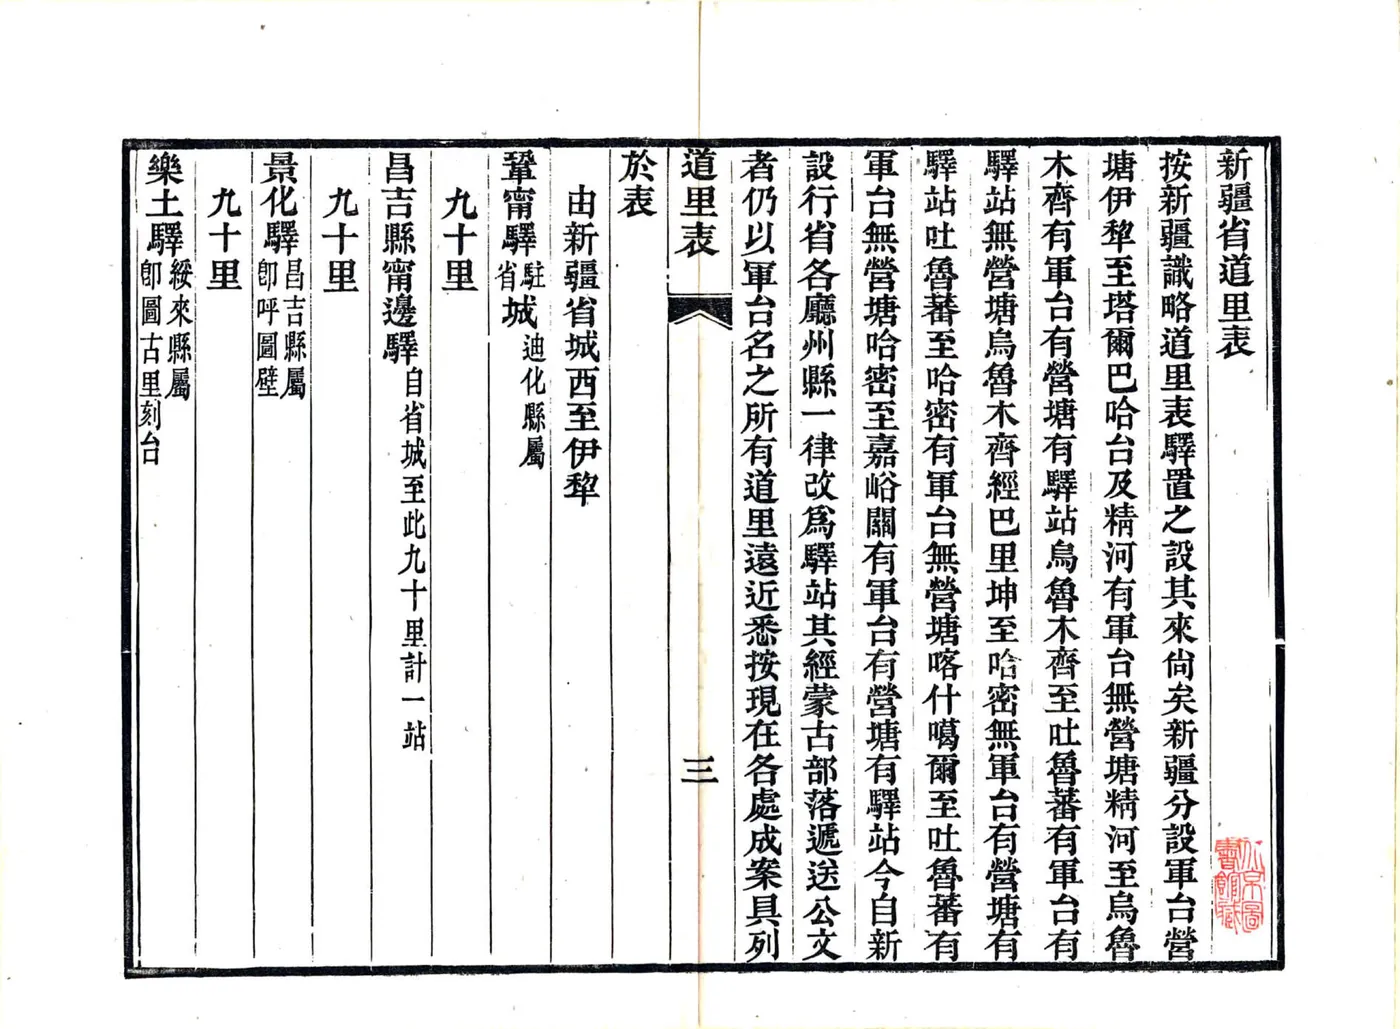 新疆省道里表
按新疆識略道里表驛置之設其來尙矣新疆分設軍台營
塘伊犂至塔爾巴哈台及精河有軍台無營塘精河至烏魯
木齊有軍台有營塘有驛站烏魯木齊至吐魯蕃有軍台有
驛站無營塘烏魯木齊經巴里坤至哈密無軍台有營塘有
驛站吐魯蕃至哈密有軍台無營塘喀什噶爾至吐魯蕃有
軍台無營塘哈密至嘉峪關有軍台有營塘有驛站今自新
設行省各廳州縣一律改爲驛站其經蒙古部落遞送公文
者仍以軍台名之所有道里遠近悉按現在各處成案具列
道里表
三
於表
由新疆省城西至伊犂
鞏甯驛駐省城迪化縣屬
九十里
昌吉縣甯邊驛自省城至此九十里計一站
九十里
景化驛昌吉縣屬
卽呼圖壁
九十里
樂土驛綏來縣屬
卽圖古里刻台
北京圖書館藏